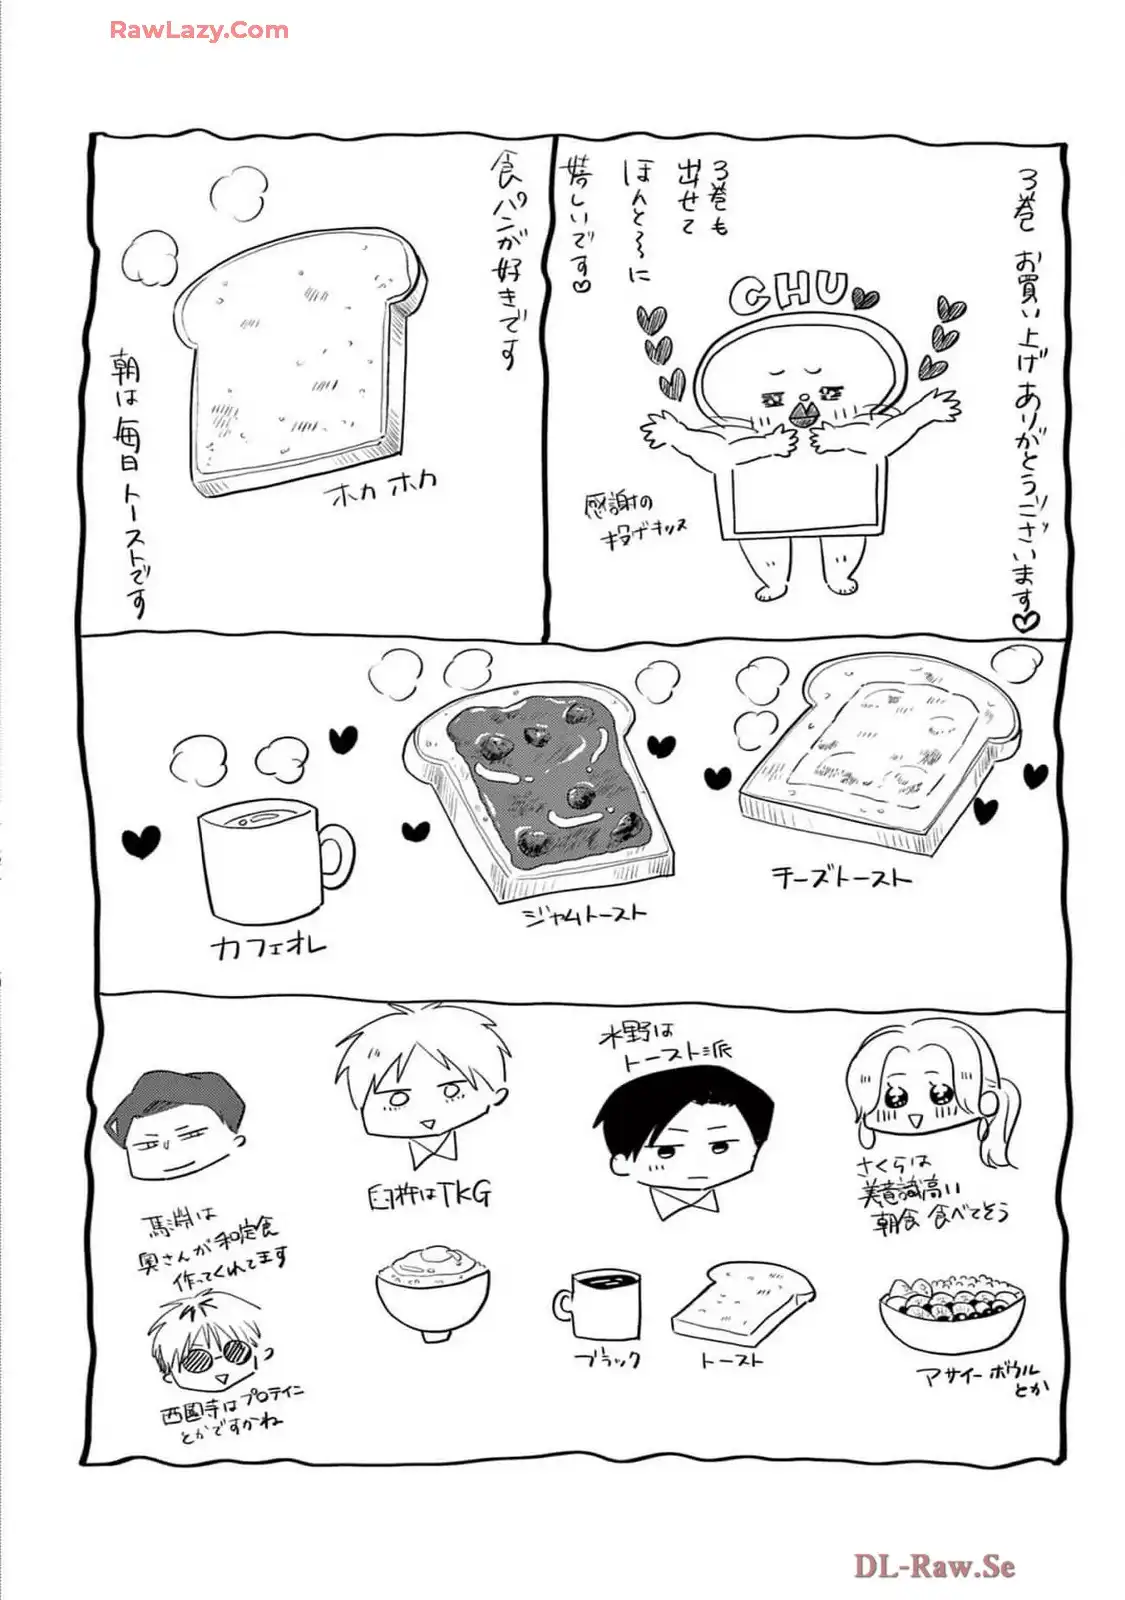 RawLazy.Com
3巻 お買い上げ ありがとうございます♡
3巻も
出せて
ほんと〜に
嬉しいです♡
CHU
感謝の
投げキッス
食パンが好きです
ホカ ホカ
朝は毎日トーストです
チーズトースト
ジャムトースト
カフェオレ
さくらは
美意識高い
朝食 食べてそう
アサイーボウル
とか
水野は
トースト派
トースト
ブラック
臼杵はTKG
馬渕は
奥さんが和定食
作ってくれてます
西園寺はプロテイン
とかですかね
DL-Raw.Se